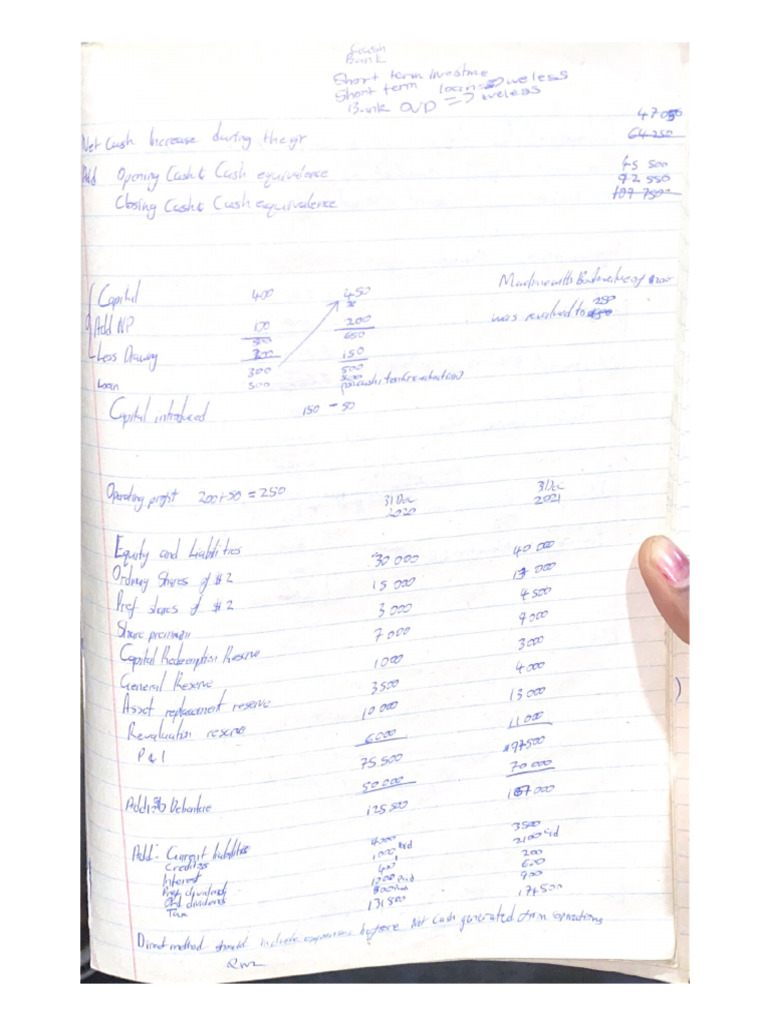 Cash
Bank
Short term investme
Short term loan => we less
Bank O/D => we less
Net Cash Increase during the yr 47 050 64 250
Add Opening Cash & Cash equivalence 45 500
Closing Cash & Cash equivalence 92 550 109 750
Capital 400 450 Machine with Book value of $200
Add NP 100 200 was revalued to 250
500 650
Less Drawing 200 150
300 500
Loan 500 500
Capital introduced 150 - 50
Operating profit 200+50 = 250
31 Dec 2020 31 Dec 2021
Equity and Liabilities
Ordinary Shares of $2 30 000 40 000
Pref shares of $2 15 000 13 000
Share premium 3 000 4 500
Capital Redemption Reserve 7 000 9 000
General Reserve 1 000 3 000
Asset replacement reserve 3500 4 000
Revaluation reserve 10 000 13 000
P & l 6000 11 000
75 500 97500
Add: Debenture 50 000 70 000
125 500 167 000
Add:- Current liabilities
Creditors 4000 3500
Interest 1000 2100
Pref dividend 400 200
Ord dividend 1200 600
Tax 900
131 500 174 500
Direct method should include expenses before Net Cash generated from operations